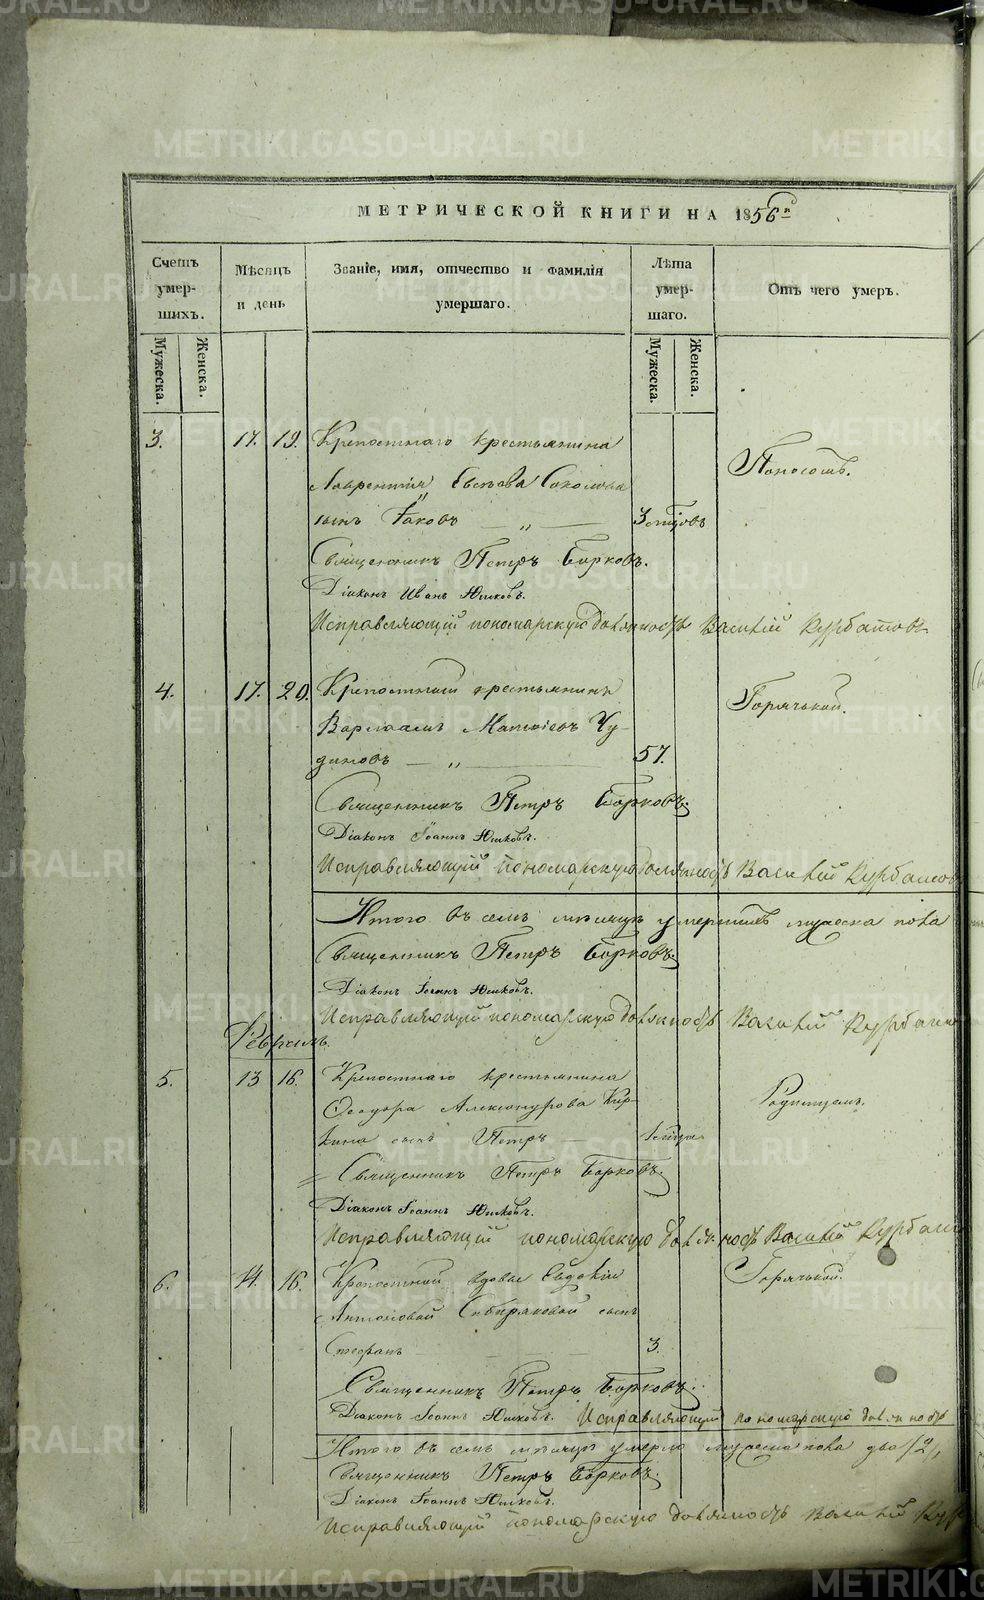 МЕТРИЧЕСКОЙ КНИГИ НА 1856й
Счетъ умер-шихъ.
Мѣсяцъ и день
Званіе, имя, отчество и фамилія умершаго.
Лѣта умер-шаго.
Отъ чего умеръ.
Мужеска. Женска.
Мужеска. Женска.
3. 17. 19. Крепостнаго крестьянина
Поносомъ.
Лаврентія Евсѣева Соколова
сынъ Іаковъ — „ —
Священникъ Петръ Борковъ.
Діаконъ Иванъ Юшковъ.
Исправляющій пономарскую должность Василій Курбатовъ
4. 17. 20. Крепостный крестьянинъ
Горячькой.
Варлаамъ Матвіевъ Чу-
диновъ — „ — 57.
Священникъ Петръ Борковъ.
Діаконъ Іоаннъ Юшковъ.
Исправляющій пономарскую должность Василій Курбатовъ
Итого въ семъ мѣсяцѣ умершихъ мужеска пола
Священникъ Петръ Борковъ.
Діаконъ Іоаннъ Юшковъ.
Исправляющій пономарскую должность Василій Курбато
Февраль.
5. 13 16. Крепостнаго крестьянина
Родимцемъ.
Ѳеодора Александрова Кир-
кина сынъ Петръ —
Священникъ Петръ Борковъ.
Діаконъ Іоаннъ Юшковъ.
Исправляющій пономарскую должность Василій Курбато
6. 14. 16. Крепостной вдовы Евдокіи
Горячькой.
Антоновой Сибиряковой сынъ
Стефанъ — 3.
Священникъ Петръ Борковъ.
Діаконъ Іоаннъ Юшковъ. Исправляющій пономарскую должность
Итого въ семъ мѣсяцѣ умерло мужеска пола два /2/,
Священникъ Петръ Борковъ.
Діаконъ Іоаннъ Юшковъ.
Исправляющій пономарскую должность Василій Кур
METRIKI.GASO-URAL.RU